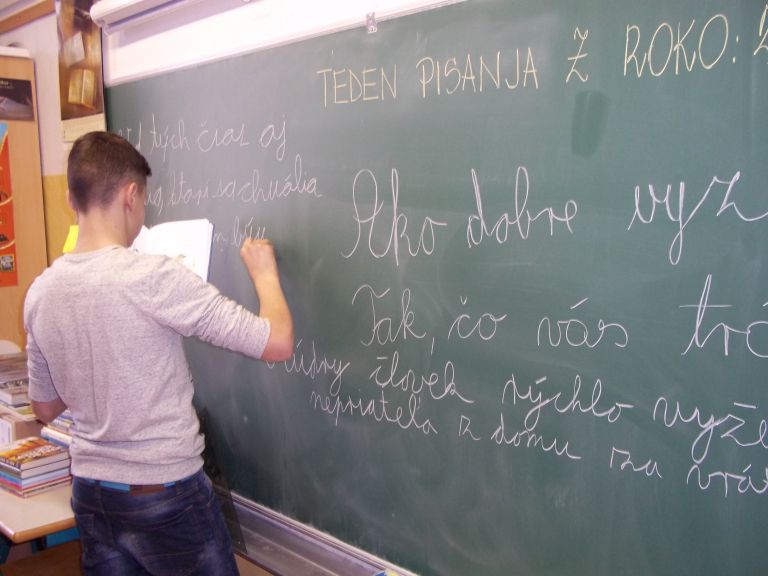 TEDEN PISANJA Z ROKO:
tých čias aj
sa chvália
Ako dobre vyz
Tak, čo vás trá
múdry človek rýchlo vyže
nepriateľa z domu za vrát